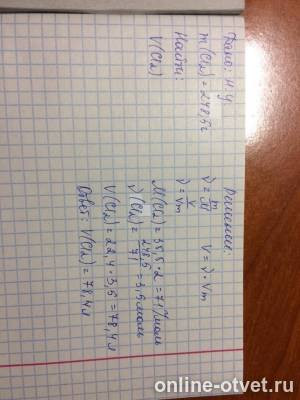 Дано: н.у
m(Cl₂)=248,5г
Найти:
V(Cl₂)
Решение:
ν = m/M V = ν · Vm
ν = V/Vm
M(Cl₂) = 35,5 · 2 = 71 г/моль
ν(Cl₂) = 248,5/71 = 3,5 моль
V(Cl₂) = 22,4 · 3,5 = 78,4 л
Ответ: V(Cl₂) = 78,4 л
online-otvet.ru